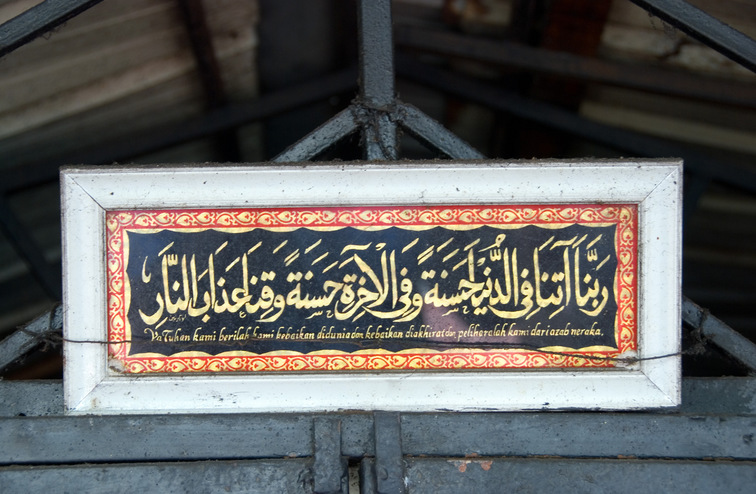 رَبَّنَا آتِنَا فِى الدُّنْيَا حَسَنَةً وَفِى الْآخِرَةِ حَسَنَةً وَقِنَا عَذَابَ النَّارَ
Ya Tuhan kami berilah kami kebaikan didunia dan kebaikan diakhirat dan peliharalah kami dari azab neraka.